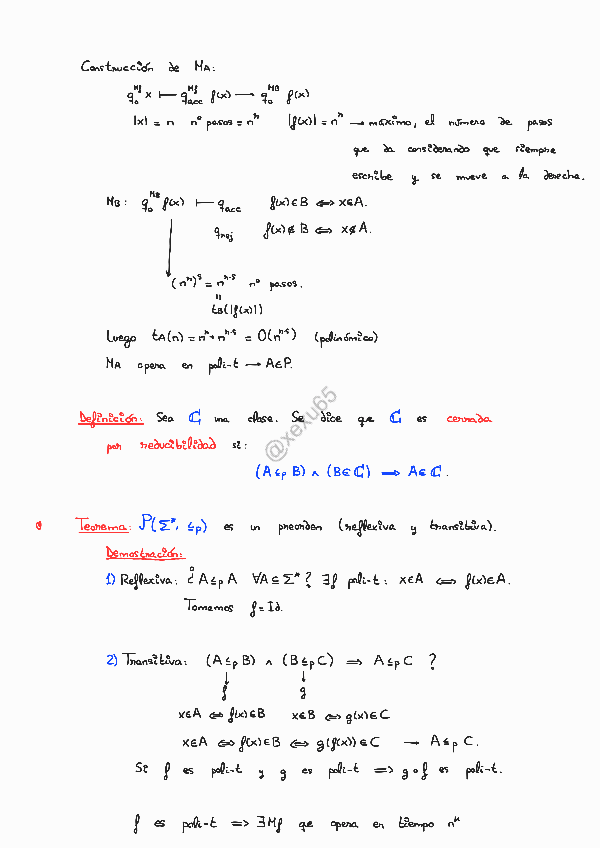 Construcción de MA:
q₀^Mf x ⊢ q_acc^Mf f(x) → q₀^MB f(x)
|x| = n nº pasos = n^r |f(x)| = n^r → máximo, el número de pasos
que da considerando que siempre
escribe y se mueve a la derecha.
MB: q₀^MB f(x) ⊢ q_acc f(x) ∈ B ⟺ x ∈ A.
q_rej f(x) ∉ B ⟺ x ∉ A.
(n^r)^s = n^r·s nº pasos.
=
t_B(|f(x)|)
Luego t_A(n) = n^r + n^r·s = O(n^r·s) (polinómico)
MA opera en poli-t → A∈P.
@xexu65
Definición: Sea ℂ una clase. Se dice que ℂ es cerrada
por reducibilidad si:
(A ≤p B) ∧ (B ∈ ℂ) ⟹ A ∈ ℂ.
Teorema: P(Σ*, ≤p) es un preorden (reflexiva y transitiva).
Demostración:
1) Reflexiva: ¿A ≤p A ∀A ⊆ Σ*? ∃f poli-t: x∈A ⟺ f(x)∈A.
Tomemos f = Id.
2) Transitiva: (A ≤p B) ∧ (B ≤p C) ⟹ A ≤p C ?
↓ ↓
f g
x∈A ⟺ f(x)∈B x∈B ⟺ g(x)∈C
x∈A ⟺ f(x)∈B ⟺ g(f(x))∈C → A ≤p C.
Si f es poli-t y g es poli-t ⟹ g∘f es poli-t.
f es poli-t ⟹ ∃Mf que opera en tiempo n^k